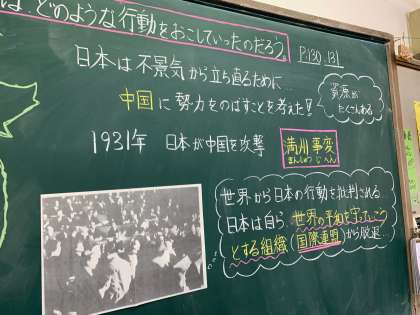 は、どのような行動をおこしていったのだろう。
P.130、131
日本は不景気から立ち直るために…
中国に勢力をのばすことを考えた!!
資源が
たくさんある
1931年 日本が中国を攻撃 満州事変
まんしゅうじへん
世界から日本の行動を批判される
日本は自ら、世界の平和を守っていこう
とする組織(国際連盟)から脱退…